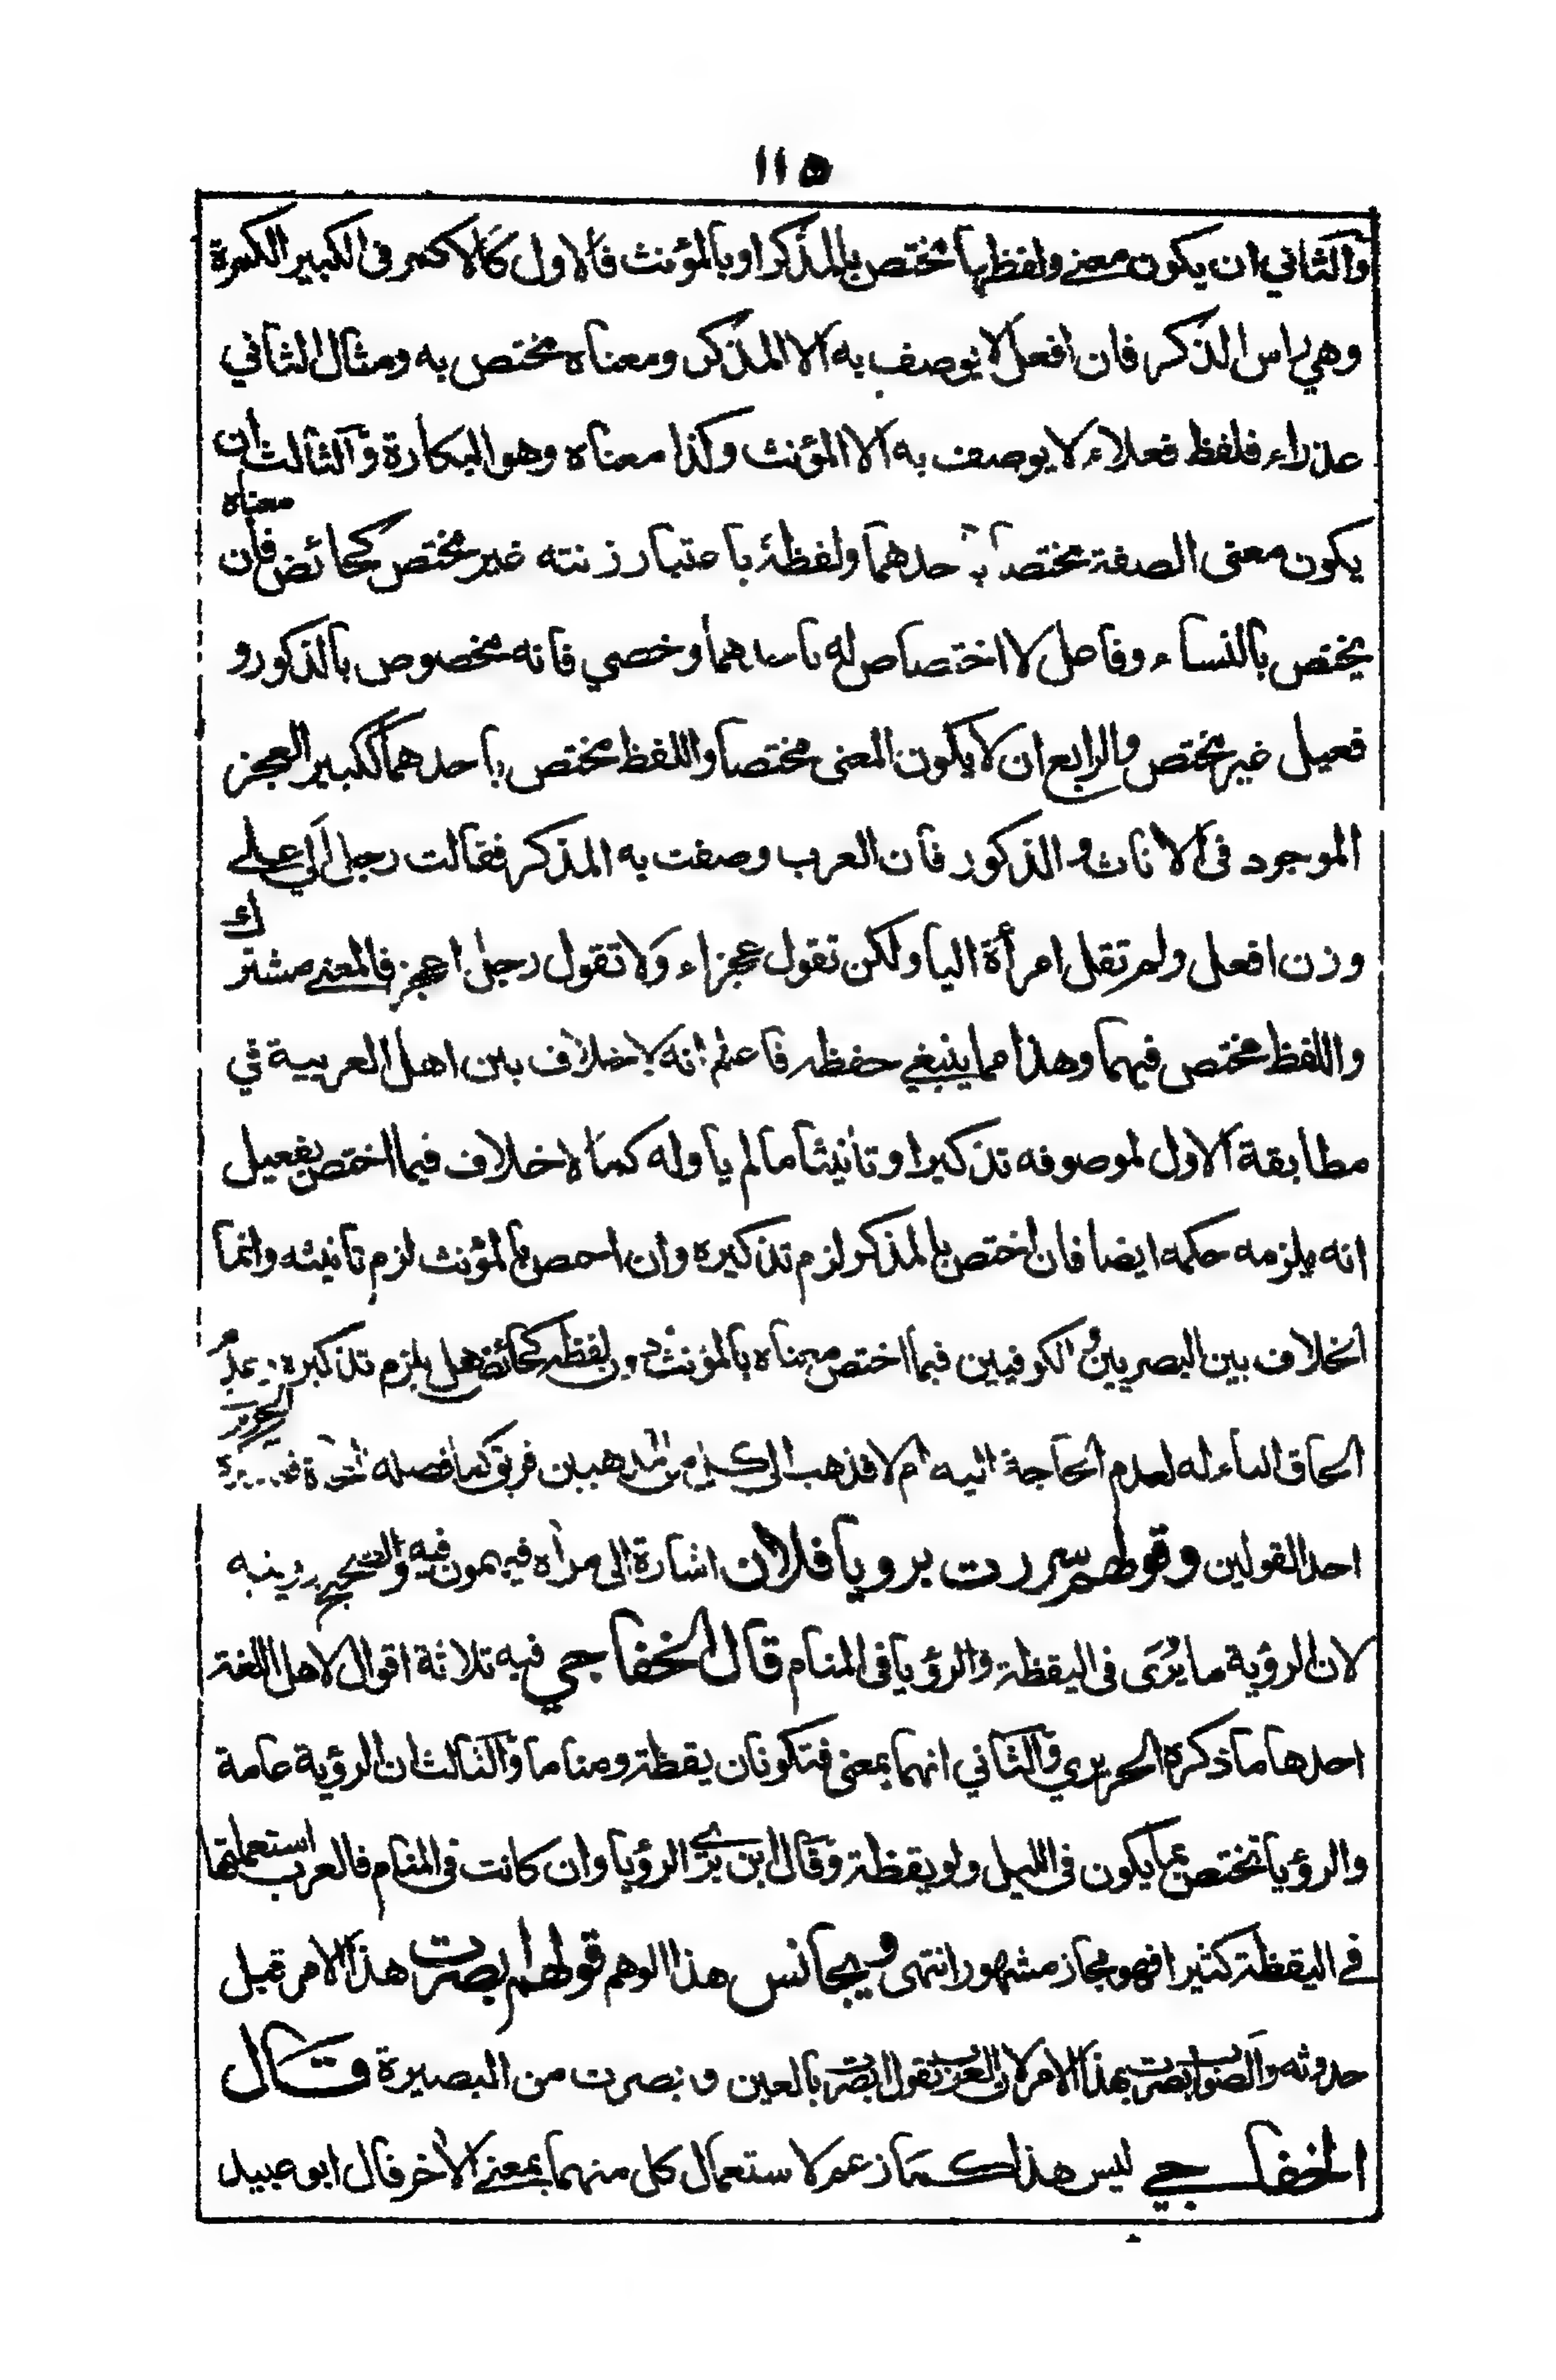 ١١٥
والثاني ان يكون معنى ولفظها مختص بالمذكر او بالمؤنث فالاول كالاكمر في الكبير الكمرة
وهي راس الذكر فان افعل لا يوصف به الا المذكر ومعناه مختص به ومثال الثاني
عذراء فلفظ فعلاء لا يوصف به الا المؤنث وكذا معناه وهو البكارة والثالث ان
يكون معنى الصفة مختصا باحدهما ولفظه باعتبار زنته غير مختص كحائض فان معناه
يختص بالنساء وفاعل لا اختصاص له باحدهما وخصي فانه مخصوص بالذكور و
فعيل غير مختص والرابع ان لا يكون المعنى مختصا واللفظ مختص باحدهما ككبير العجز
الموجود في الاناث والذكور فان العرب وصفت به المذكر فقالت رجل الي على
وزن افعل ولم تقل امرأة اليا ولكن تقول عجزاء ولا تقول رجل اعجز فالمعنى مشترك
واللفظ مختص فيهما وهذا مما ينبغي حفظه فاعلم انه لا خلاف بين اهل العربية في
مطابقة الاول لموصوفه تذكيرا وتانيثا ما لم ياوله كما لا خلاف فيما اختص بفعيل
انه يلزمه حكمه ايضا فان اختص بالمذكر لزم تذكيره وان احص بالمؤنث لزم تانيثه وانما
الخلاف بين البصريين والكوفيين فيما اختص معناه بالمؤنث دون لفظه كحائض هل يلزم تذكيره
الحاق التاء له لعدم الحاجة اليه ام لا فذهب الى كل من المذهبين فريق كما فصله
احد القولين وقولهم سررت برويا فلان اشارة الى مرآه فيهمون فيه والصحيح برويته
لان الرؤية ما يُرَى في اليقظة والرؤيا في المنام قال الخفاجي فيه ثلاثة اقوال لاهل اللغة
احدها ما ذكره الحريري والثاني انهما بمعنى فتكونان يقظة ومناما والثالث ان الرؤية عامة
والرؤيا تختص بما يكون في الليل ولو يقظة وقال ابن برّي الرؤيا وان كانت في المنام فالعرب استعملتها
في اليقظة كثيرا فهو مجاز مشهور انتهى ويجانس هذا الوهم قولهم ابصرت هذا الامر قبل
حدوثه والصواب بصرت بهذا الامر لان العرب تقول ابصرت بالعين وبصرت من البصيرة قال
الخفاجي ليس هذا كما زعم لاستعمال كل منهما بمعنى الاخر قال ابو عبيد